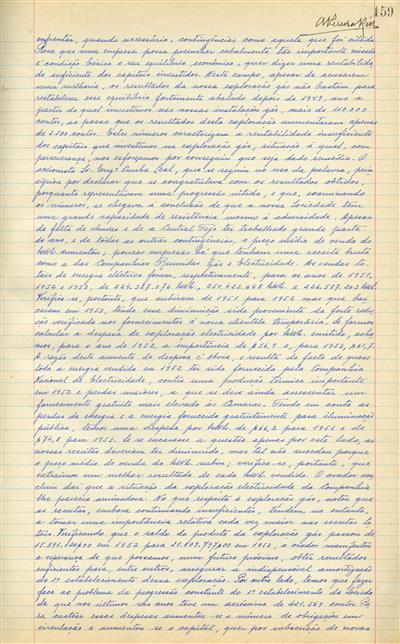 159
enfrentar, quando necessário, contingências como aquela que foi citada.
Para que uma empresa possa preencher cabalmente tão importante missão
é condição básica o seu equilíbrio económico, quer dizer uma rentabilida-
de suficiente dos capitais investidos. Neste campo, apesar de acusarem
uma melhoria, os resultados da nossa exploração gás não bastam para
restabelecer um equilíbrio fortemente abalado depois de 1947, ano a
partir do qual investimos nas nossas instalações gás, mais de
contos, ao passo que os resultados desta exploração aumentaram apenas
de 2.500 contos. Estes números caracterizam a rentabilidade insuficiente
dos capitais que investimos na exploração gás, situação à qual, com
perseverança, nos esforçamos por conseguir que seja dado remédio. O
accionista Sr. Engº Cunha Leal, que se seguiu no uso da palavra, prin-
cipiou por declarar que se congratulava com os resultados obtidos,
porquanto representavam uma progressão nítida, e que, examinando
os números, se chegava à conclusão de que a nossa Sociedade tem
uma grande capacidade de resistência mesmo à adversidade. Apesar
da falta de chuvas e de a Central Tejo ter trabalhado grande parte
do ano, e de todas as outras contingências, o preço médio de venda do
kWh. aumentou; poucas empresas há que tenham uma receita bruta
como a das Companhias Reunidas Gás e Electricidade. As vendas to-
tais de energia eléctrica foram, respectivamente, para os anos de 1951,
1952 e 1953, de 229.387.076 kWh., 251.423.648 kWh. e 226.587.203 kWh.
Verifica-se, portanto, que subiram de 1951 para 1952 mas que bai-
xaram em 1953, tendo essa diminuição sido proveniente da forte redu-
ção verificada nos fornecimentos à nossa clientela temporária. A fórmula
calcular a despesa de exploração electricidade por kWh. emitido, acha-
mos, para o ano de 1952, a importância de $56,9 e, para 1953, $61,7.
A razão deste aumento de despesa é óbvia, e resulta do facto de quase
toda a energia vendida em 1952 ter sido fornecida pela Companhia
Nacional de Electricidade, contra uma produção térmica importante
em 1953 e perdas maiores, a que se deve ainda acrescentar um
fornecimento gratuito mais elevado às Câmaras. Tendo em conta as
perdas de energia e a energia fornecida gratuitamente para iluminação
pública, temos uma despesa por kWh. de $66,2 para 1952 e de
$74,8 para 1953. Se se encarasse a questão apenas por este lado, as
nossas receitas deveriam ter diminuído, mas tal não sucedeu porque
o preço médio de venda do kWh. subiu; verifica-se, portanto, que
extraímos um melhor resultado de cada kWh. vendido. O orador con-
cluiu daí que a situação da exploração electricidade da Companhia
lhe parecia animadora. No que respeita à exploração gás, notou que
as receitas, embora continuando insuficientes, tendem, no entanto,
a tomar uma importância relativa cada vez maior nas receitas to-
tais. Verificando que o saldo do produto da exploração gás passou de
em 1952 para em 1953, o orador manifestou
a esperança de que possamos, num futuro próximo, obter resultados
suficientes para, entre outros, assegurar a indispensável amortização
do 1º estabelecimento dessa exploração. Por outro lado, temos que fazer
face ao problema da progressão constante do 1º estabelecimento da Socieda-
de que nos últimos anos teve um acréscimo de 421.569 contos. Pa-
ra custear essas despesas aumentou-se o número de obrigações em
circulação e aumentou-se o capital, quer por subscrição de novas